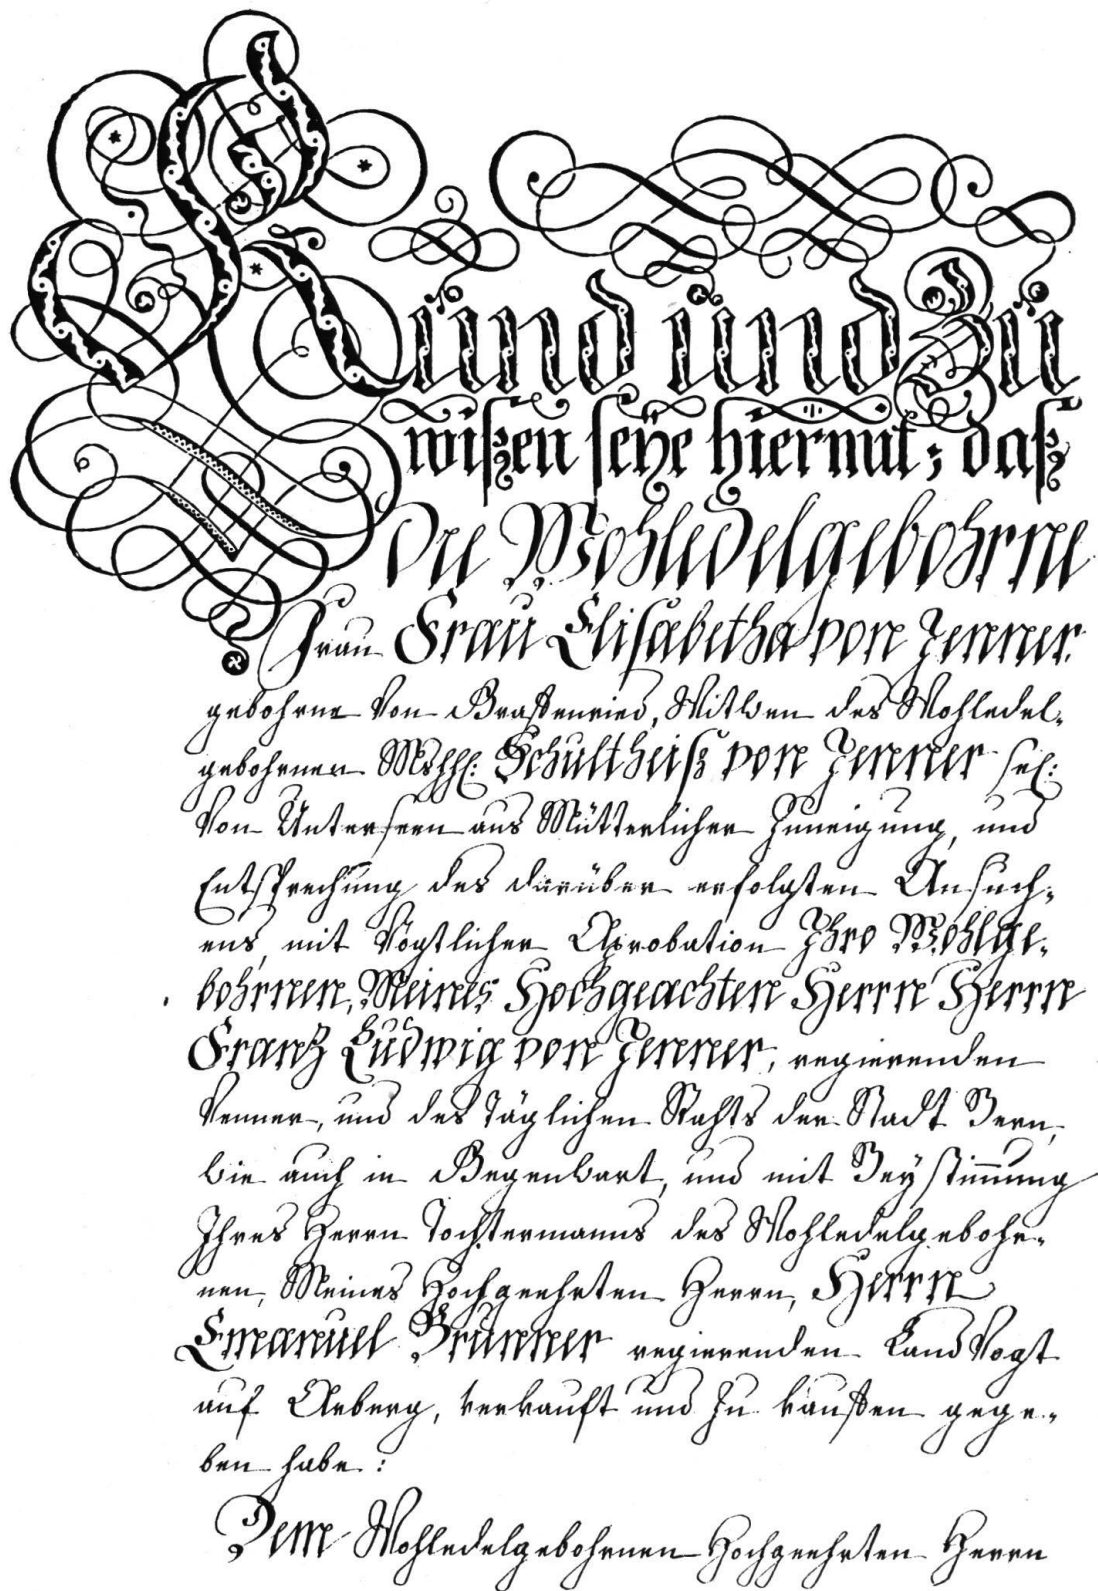 Kund und Zu
wißen seÿe hiermit; daß
Die Wohledelgebohrne
Frau Frau Elisabetha von Jenner
gebohrne von Graffenried, Witwen des Wohledel-
gebohrnen MshhH: Schultheiß von Jenner sel:
von Unterseen aus Mütterlicher Zuneigung, und
Entsprechung des darüber erfolgten Ansuch-
ens, mit Vögtlicher Aprobation Ihro Wohlge-
bohrnen, Meines Hochgeachten Herrn Herrn
Frantz Ludwig von Jenner, regierenden
Venner, und des Täglichen Rahts der Stadt Bern,
wie auch in Gegenwart, und mit Beystim̄ung
Ihres Herrn Tochtermanns des Wohledelgebohr-
nen, Meines Hochgeehrten Herrn, Herrn
Emanuel Brunner regierenden LandVogt
auf Arberg, verkauft und zu kauffen gege-
ben habe:
Dem Wohledelgebohrnen Hochgeehrten Herrn